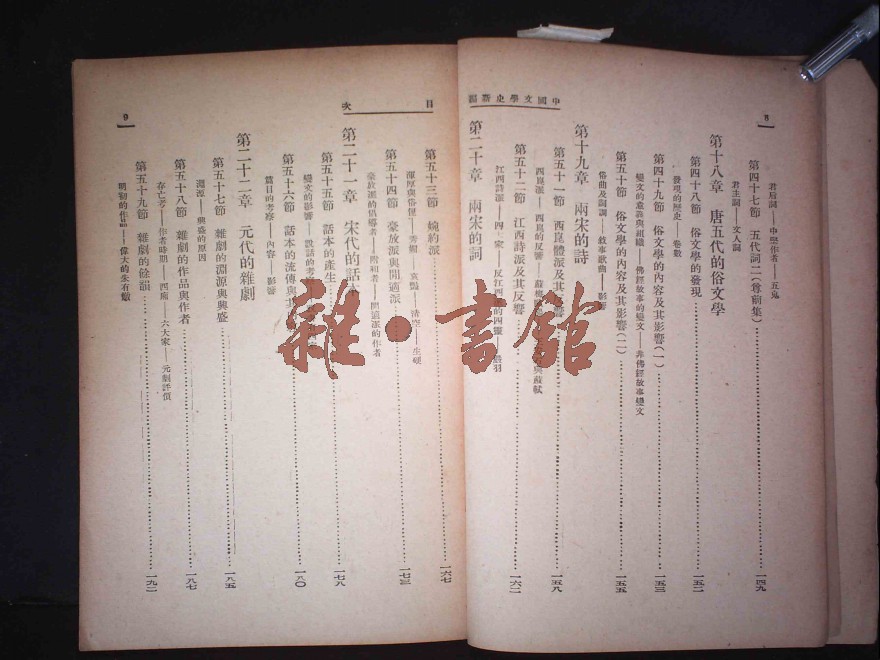 8
中國文學史新編
君后詞——中堅作者——五鬼
第四十七節 五代詞二(尊前集)……一四九
君主詞——文人詞
第十八章 唐五代的俗文學
第四十八節 俗文學的發現……一五二
發現的歷史——卷數
第四十九節 俗文學的內容及其影響(一)……一五三
變文的意義與組織——佛經故事的變文——非佛經故事變文
第五十節 俗文學的內容及其影響(二)……一五五
俗曲及詞調——敘事歌曲——影響
第十九章 兩宋的詩
第五十一節 西崑體派及其反響……一五八
西崑派——西崑的反響
與蘇軾
第五十二節 江西詩派及其反響……一六二
江西詩派——四
家——反江西
的四靈
羽
第二十章 兩宋的詞
目 次
第五十三節 婉約派……一六七
渾厚與俗俚——秀媚
清空——生硬
第五十四節 豪放派與閒適派……一七三
豪放派的倡導者——附和者
閒適派的作者
第二十一章 宋代的話本
第五十五節 話本的產生……一七八
變文的影響——說話的考
第五十六節 話本的流傳與其……一八〇
篇目的考察——內容——影響
第二十二章 元代的雜劇
第五十七節 雜劇的淵源與興盛……一八五
淵源——興盛的原因
第五十八節 雜劇的作品與作者……一八七
存亡考——作者時期——四南——六大家——元劇評價
第五十九節 雜劇的餘韻……一九二
明初的作品——偉大的朱有燉
9
雜·書館